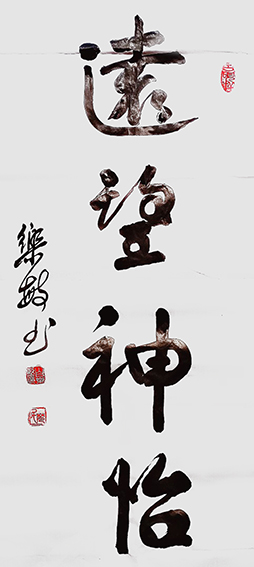 遠望神怡
樂敏书